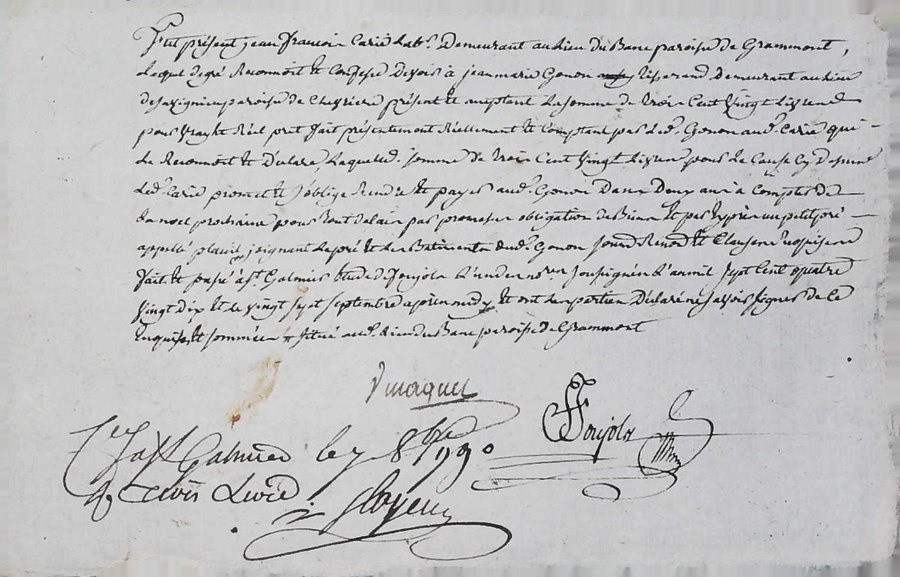 Fut présent jean francois Carié Lab.r Demeurant au Lieu du Banc paroisse de Grammont,
Lequel degré Reconnoit & Confesse devoir à jean marie Gonon tisserand Demeurant au Lieu
de paroisse de Chevriere présent & aceptant La somme de trois Cent Vingt Livres
pour Vray & Réel prêt fait présentement Réellement & Comptant par Led. Gonon aud. Carié qui
Le Reconnoit & Déclare Laquelle d. somme de trois Cent Vingt Livres pour La Cause Cy Dessus
Led. Carié promet & s'oblige Rendre & payer aud. Gonon Dans Deux ans à Compter de
La noel prochaine pour tout delai par promesse obligation de Biens & par exprès un petit pré
appellé joignant Le pré & Les Batiments dud. Gonon Renon & Clauses
fait & passé à St. Galmier Etude de Ponjols L'un des no.res soussignés L'an mil Sept Cent quatre
Vingt dix & Le Vingt Sept Septembre après midy & ont Les parties Déclaré ne savoir signer de ce
Enquises & sommées + situé aud. Lieu du Banc paroisse de Grammont
Ponjols
a St Galmier le 7 8bre 1790
trois Livre